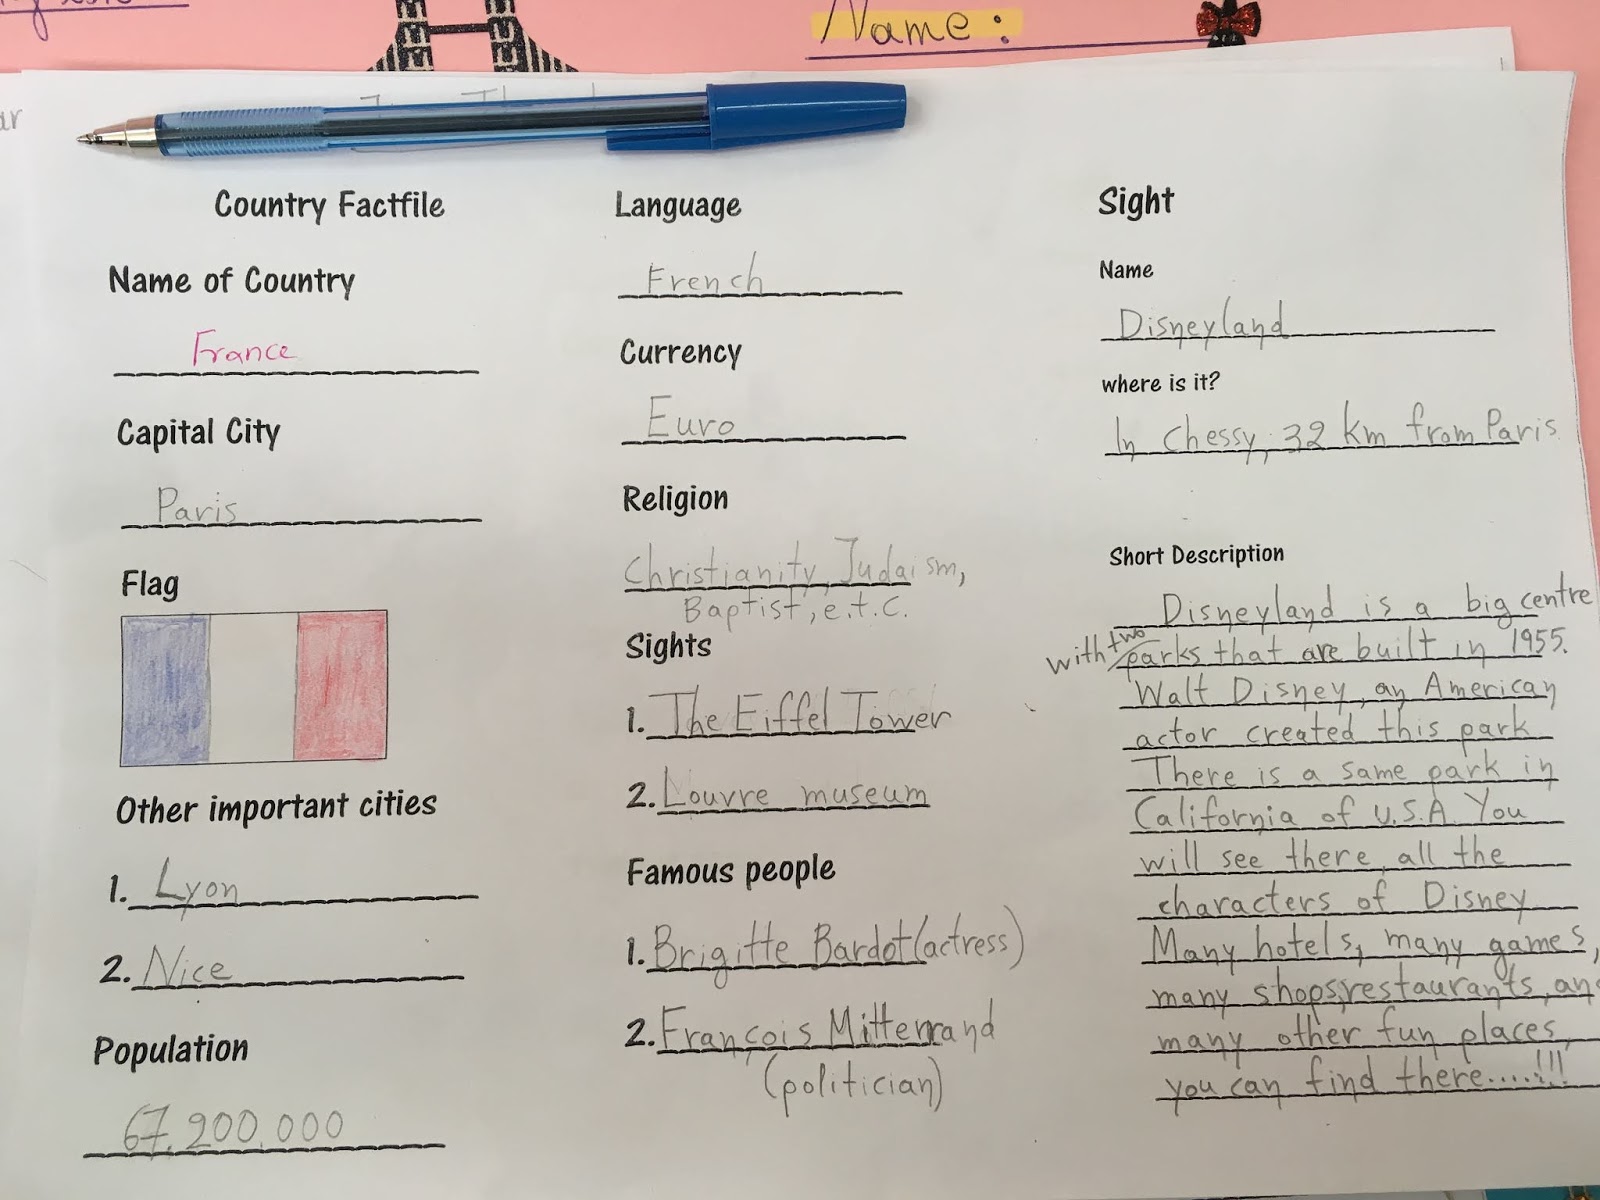 Name:
Country Factfile
Name of Country
France
Capital City
Paris
Flag
Other important cities
1. Lyon
2. Nice
Population
67.200.000
Language
French
Currency
Euro
Religion
Christianity, Judaism,
Baptist, e.t.c.
Sights
1. The Eiffel Tower
2. Louvre museum
Famous people
1. Brigitte Bardot (actress)
2. François Mitterrand
(politician)
Sight
Name
Disneyland
where is it?
In Chessy, 32 km from Paris
Short Description
Disneyland is a big centre
with two parks that are built in 1955.
Walt Disney, an American
actor created this park
There is a same park in
California of U.S.A. You
will see there, all the
characters of Disney
Many hotels, many games,
many shops, restaurants, an
many other fun places,
you can find there.....!!!